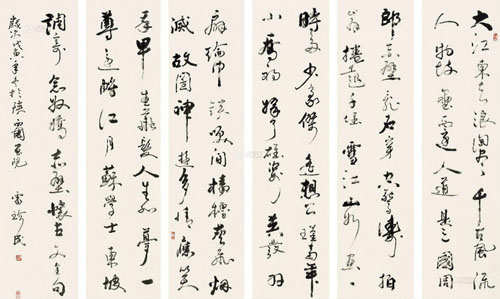 大江東去浪淘盡千古風流
人物故壘西邊人道是三國周
郎赤壁亂石穿空驚濤拍
岸捲起千堆雪江山如畫一
時多少豪傑遙想公瑾當年
小喬初嫁了雄姿英發羽
扇綸巾談笑間檣櫓灰飛煙
滅故國神遊多情應笑
我早生華髮人生如夢一
尊還酹江月蘇學士東坡
調寄念奴嬌赤壁懷古
歲次戊寅年於陝西
雷珍民